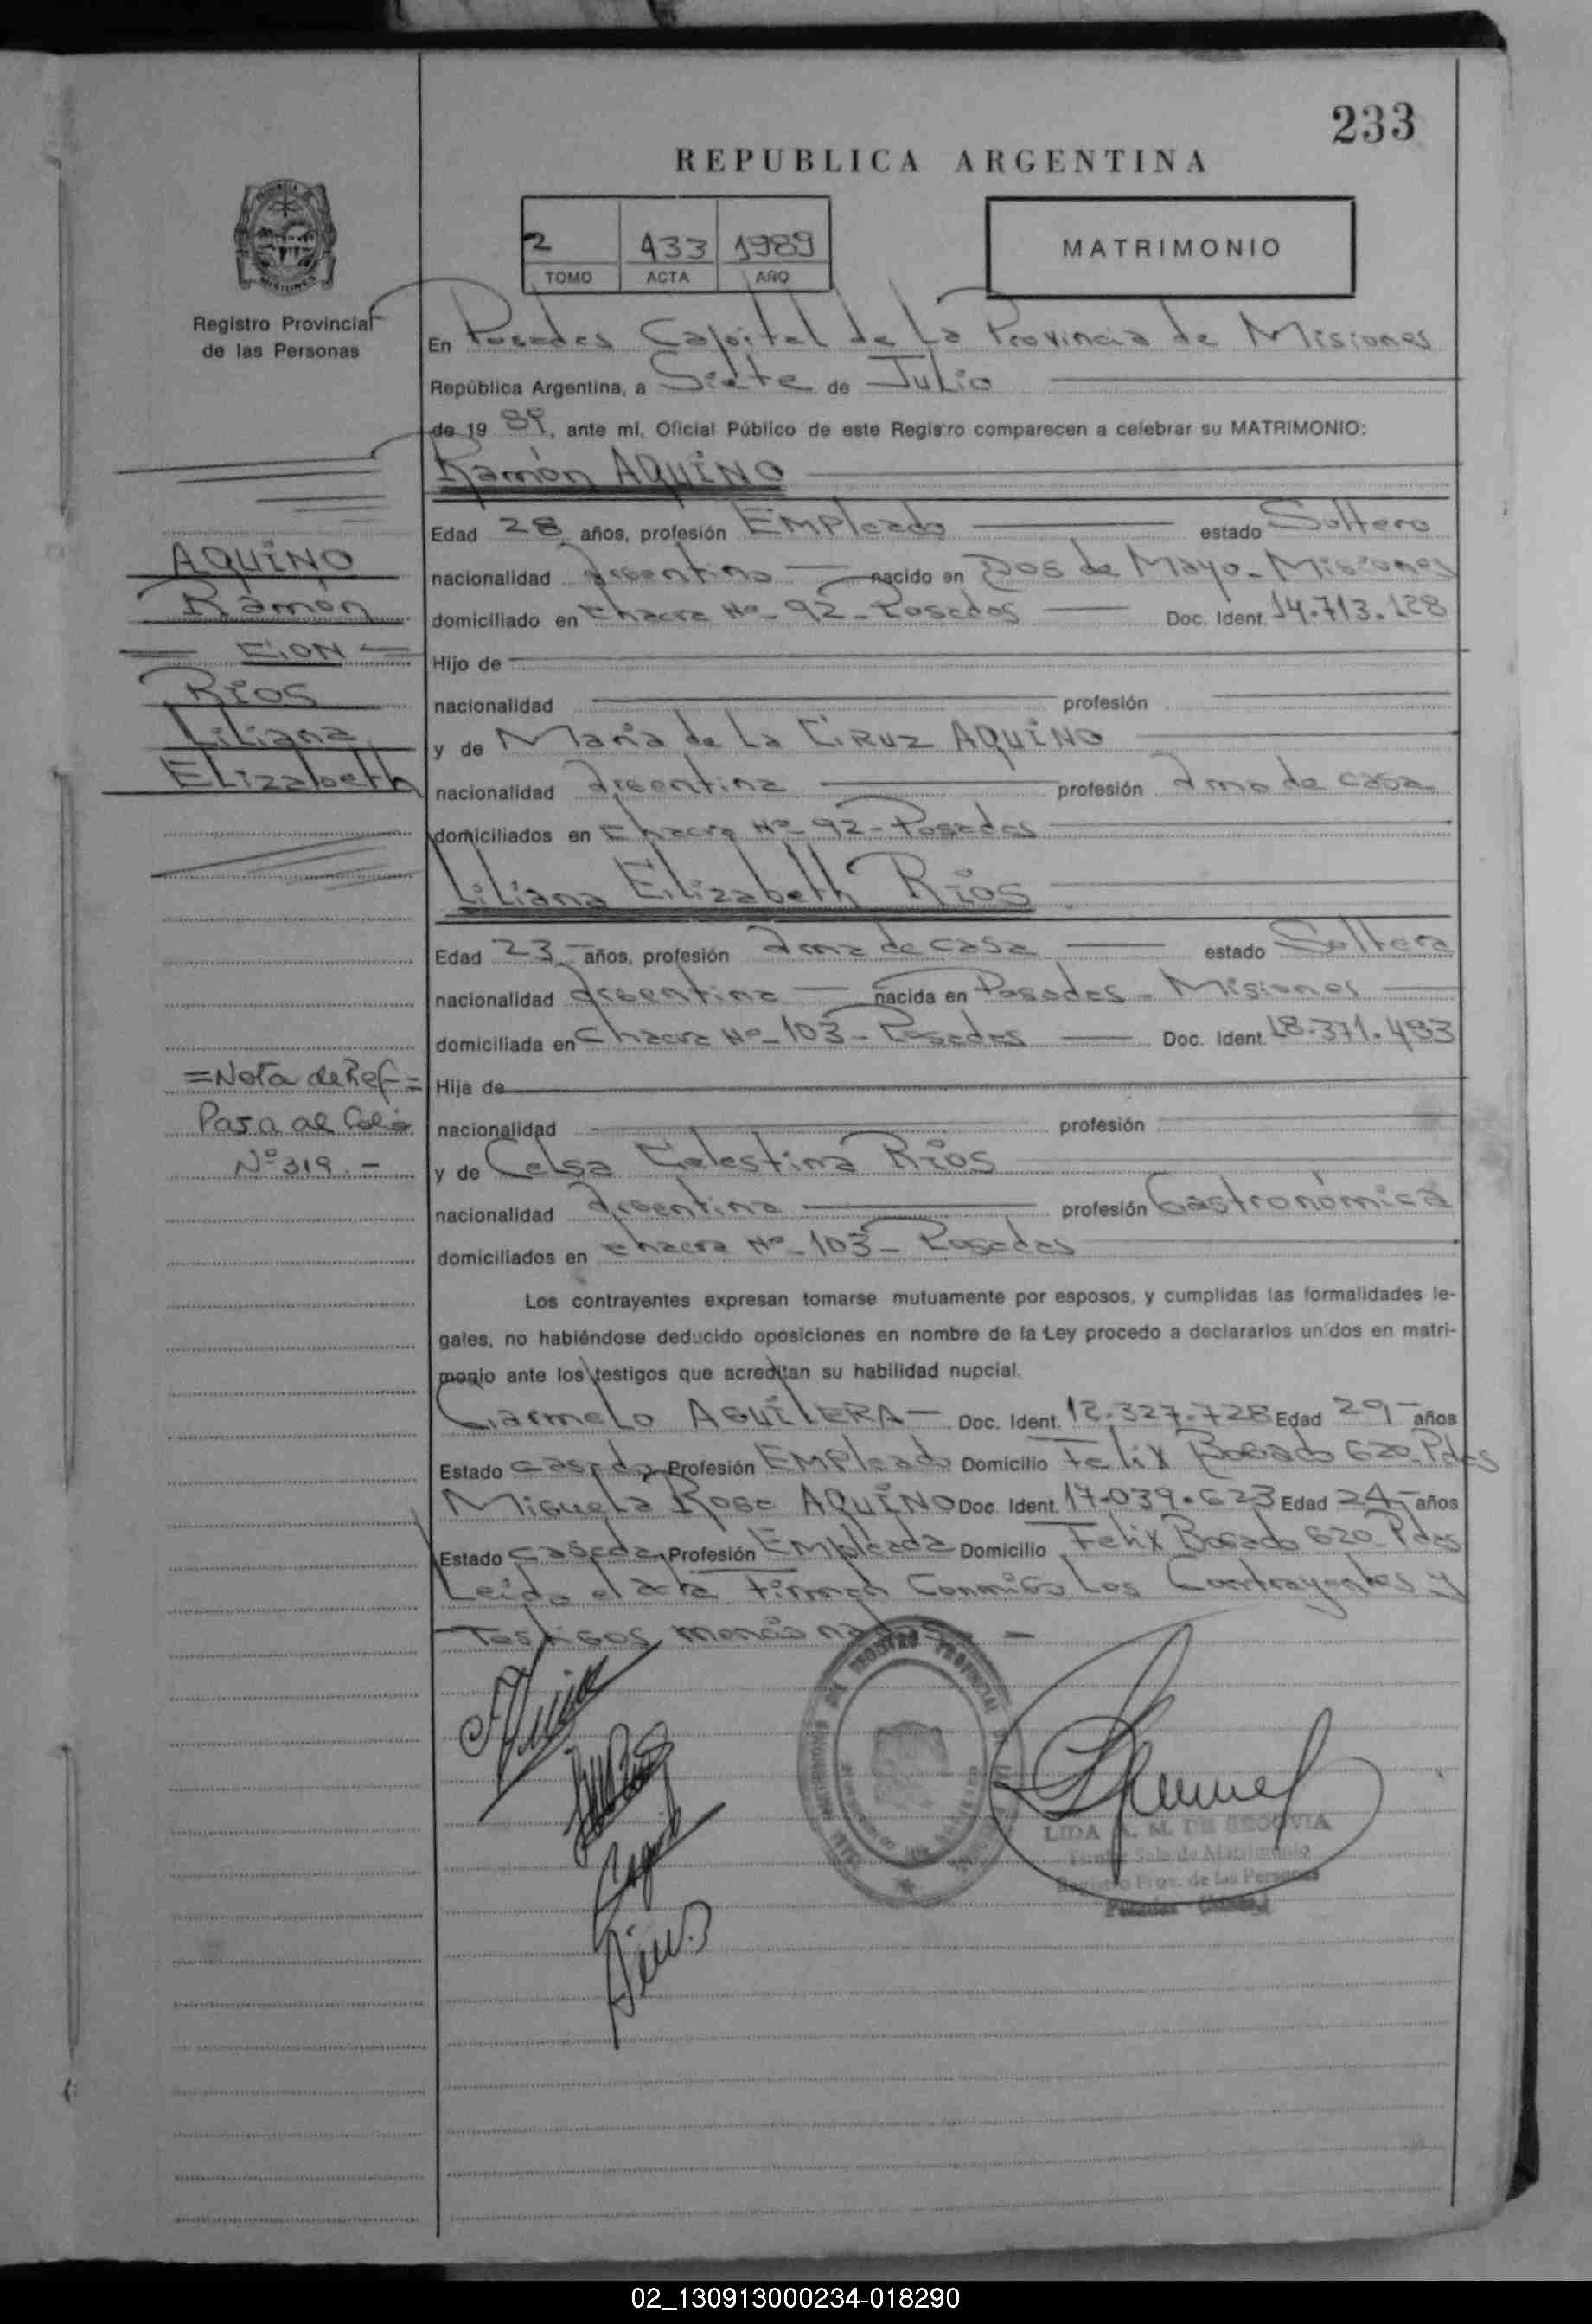 233
REPUBLICA ARGENTINA
2 433 1989
TOMO ACTA AÑO
MATRIMONIO
Registro Provincial
de las Personas
En Posadas Capital de La Provincia de Misiones
República Argentina, a Siete de Julio
de 19 89, ante mí, Oficial Público de este Registro comparecen a celebrar su MATRIMONIO:
Ramón AQUINO
Edad 28 años, profesión Empleado estado Soltero
nacionalidad Argentino nacido en Dos de Mayo - Misiones
domiciliado en Chacra Nº 92 - Posadas Doc. Ident. 14.713.128
Hijo de
nacionalidad profesión
y de María de La Cruz AQUINO
nacionalidad Argentina profesión Ama de casa
domiciliados en Chacra Nº 92 - Posadas
Liliana Elizabeth Ríos
Edad 23 años, profesión Ama de casa estado Soltera
nacionalidad Argentina nacida en Posadas - Misiones
domiciliada en Chacra Nº 103 - Posadas Doc. Ident. 18.371.483
Hija de
nacionalidad profesión
y de Celsa Celestina Ríos
nacionalidad Argentina profesión Gastronómica
domiciliados en Chacra Nº 103 - Posadas
Los contrayentes expresan tomarse mutuamente por esposos, y cumplidas las formalidades le-
gales, no habiéndose deducido oposiciones en nombre de la Ley procedo a declararlos unidos en matri-
monio ante los testigos que acreditan su habilidad nupcial.
Carmelo AGUILERA - Doc. Ident. 12.327.728 Edad 29 - años
Estado casado Profesión Empleado Domicilio Felix Bogado 620 Pdas
Miguela Rosa AQUINO Doc. Ident. 17.039.623 Edad 24 - años
Estado casada Profesión Empleada Domicilio Felix Bogado 620 Pdas
Leido el acta Firman Conmigo Los Contrayentes y
Testigos mencionados -
AQUINO
Ramón
CON
RÍOS
Liliana
Elizabeth
=Nota de Ref=
Pasa al folio
Nº 319.-
LIDA A. M. DE SEGOVIA
Titular Sala de Matrimonio
Registro Prov. de las Personas
Posadas
02_130913000234-018290